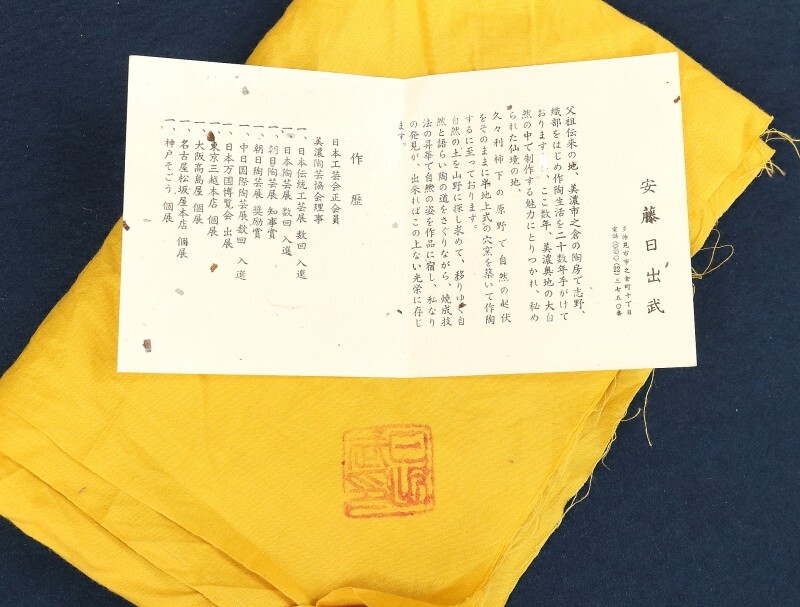 安藤日出武
多治見市市之倉町十丁目
電話 三七五〇番
父祖伝来の地、美濃市之倉の陶房で志野、
織部をはじめ作陶生活を二十数年手がけて
おります。ここ数年、美濃奥地の大自
然の中で制作する魅力にとりつかれ、秘め
られた仙境の地、
久々利柿下の原野で自然の起伏
をそのままに半地上式の穴窯を築いて作陶
するに至っております。
自然の土を山野に探し求めて、移りゆく自
然と語らい陶の道をさぐりながら、焼成技
法の昇華で自然の姿を作品に宿し、私なり
の発見が、出来ればこの上ない光栄に存じ
ます。
作歴
日本工芸会正会員
美濃陶芸協会理事
一、日本伝統工芸展 数回 入選
一、日本陶芸展 数回 入選
一、朝日陶芸展 知事賞
一、朝日陶芸展 奨励賞
一、中日国際陶芸展 数回 入選
一、日本万国博覧会 出展
一、東京三越本店 個展
一、大阪高島屋 個展
一、名古屋松坂屋本店 個展
一、神戸そごう 個展